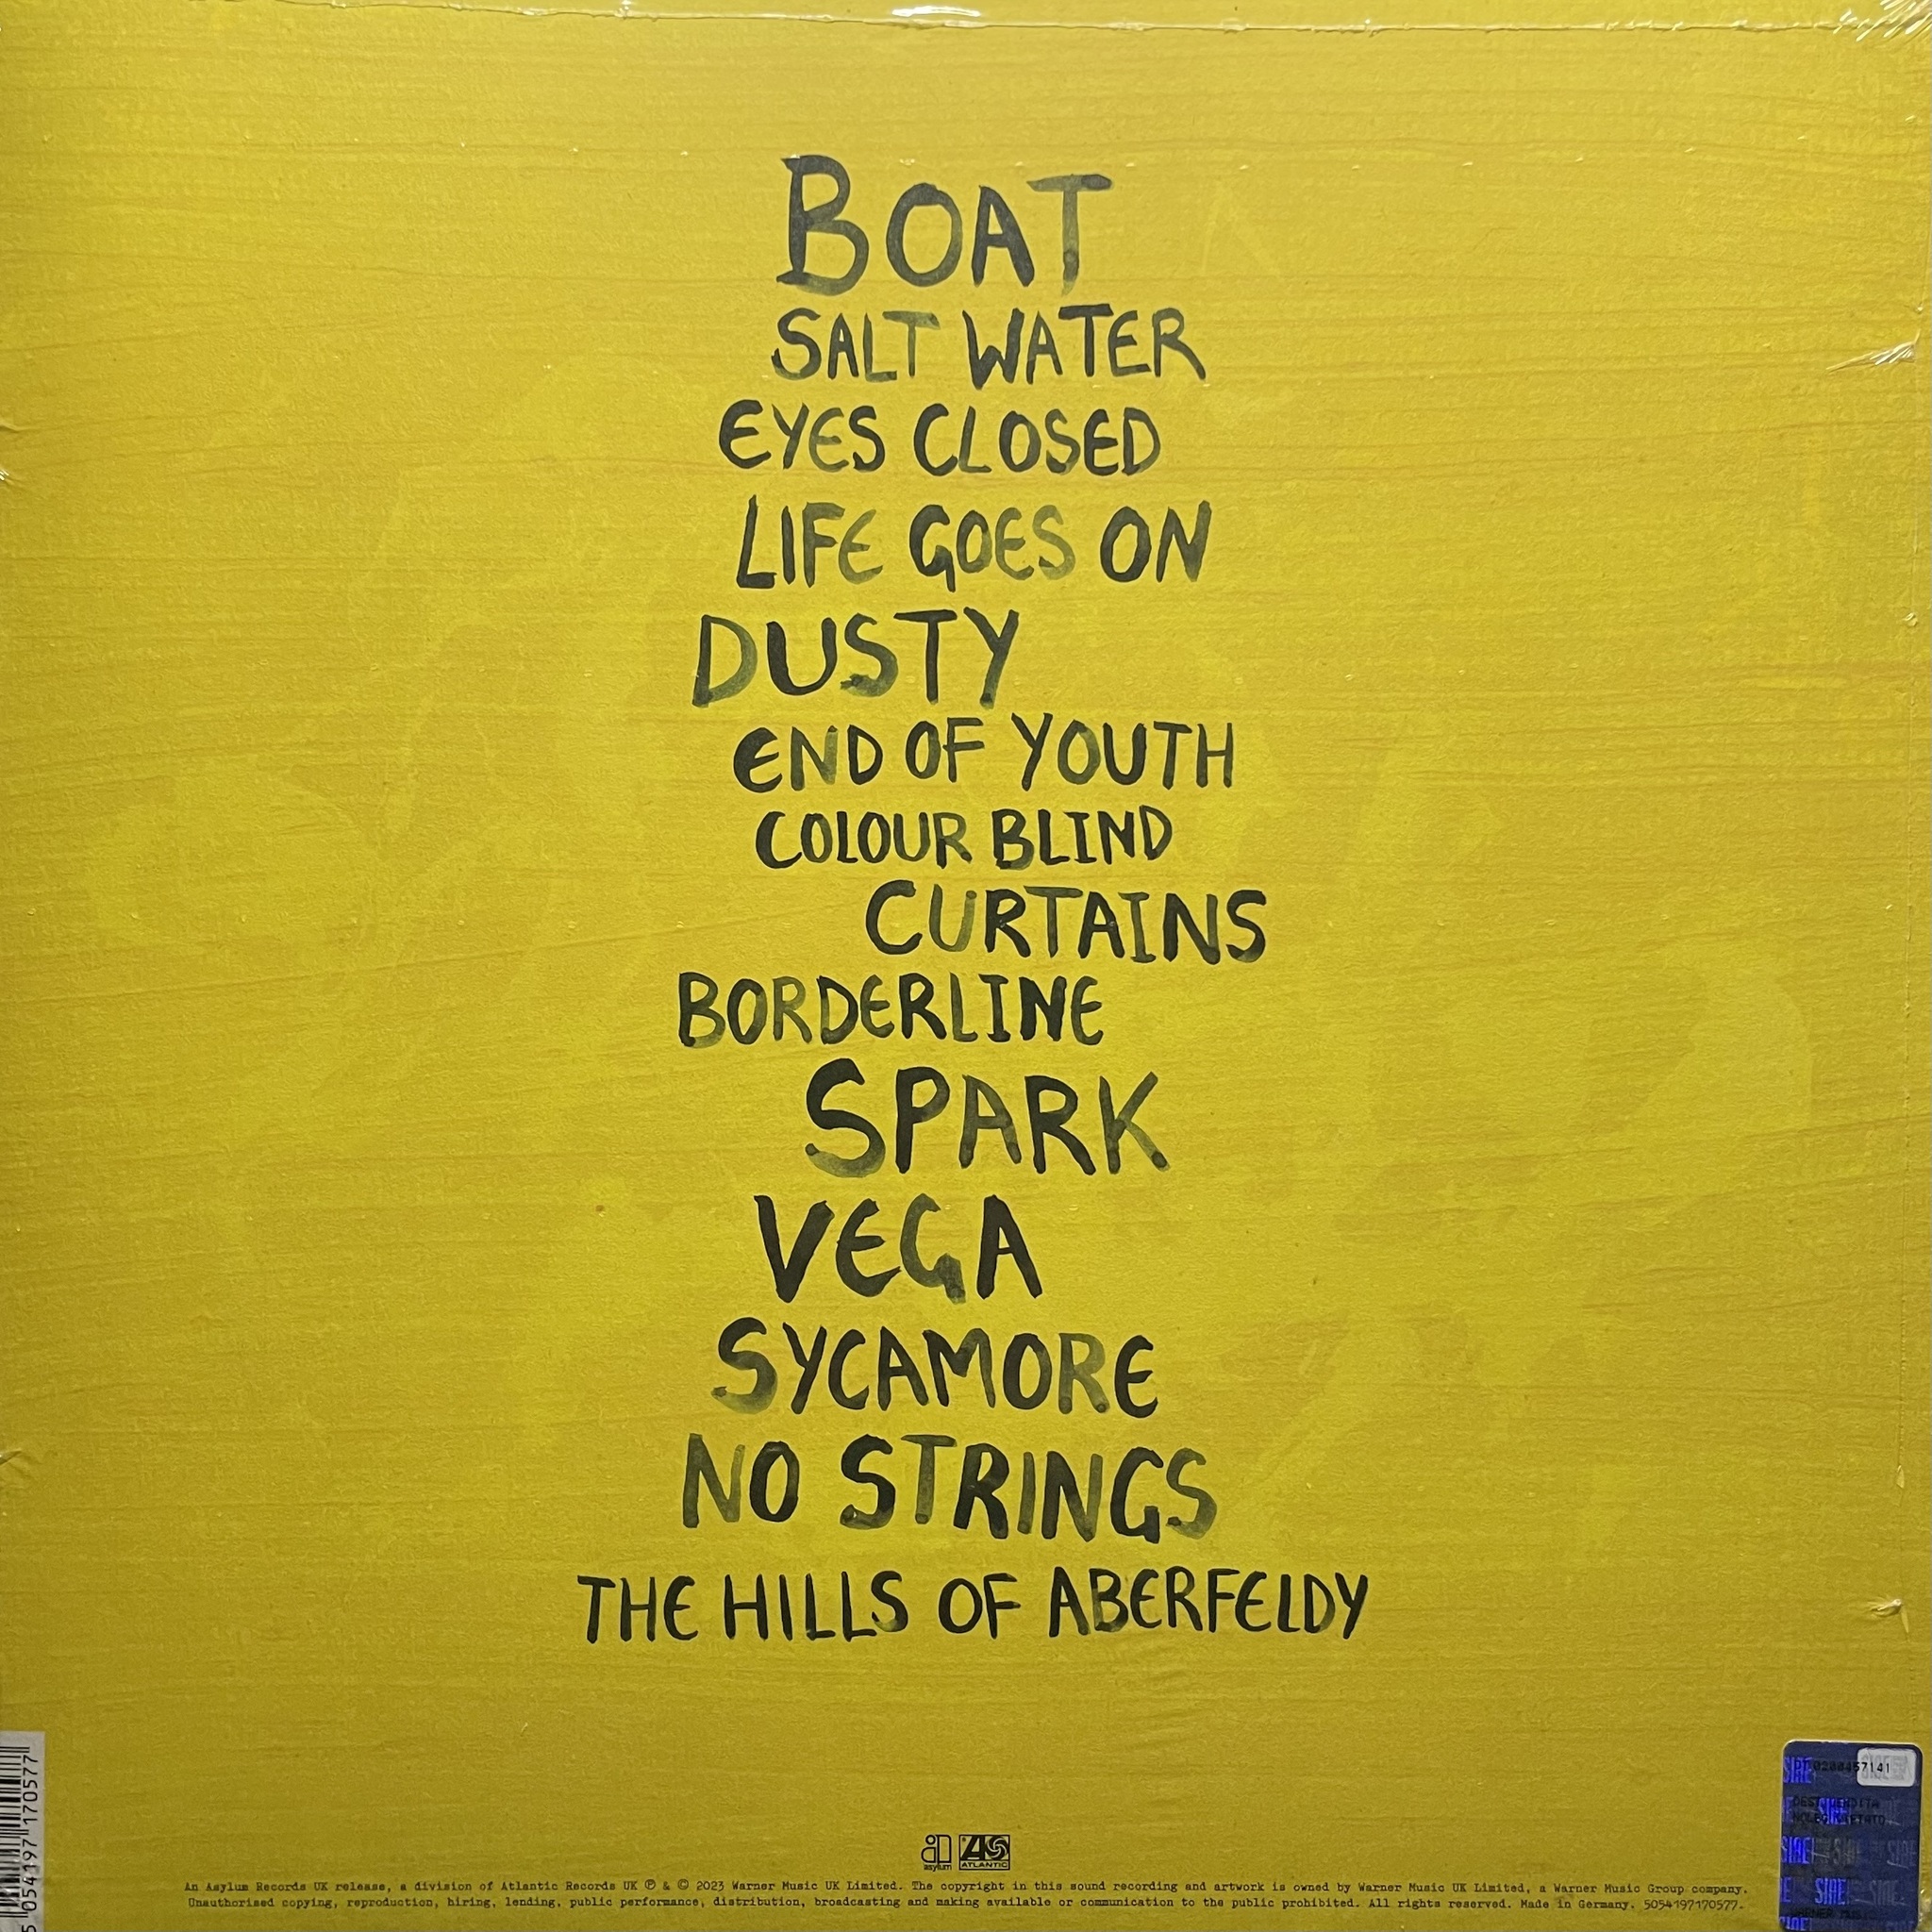 BOAT
SALT WATER
EYES CLOSED
LIFE GOES ON
DUSTY
END OF YOUTH
COLOUR BLIND
CURTAINS
BORDERLINE
SPARK
VEGA
SYCAMORE
NO STRINGS
THE HILLS OF ABERFELDY
5 054197 170577
SIAE
asylum
ATLANTIC
An Asylum Records UK release, a division of Atlantic Records UK ℗ & © 2023 Warner Music UK Limited. The copyright in this sound recording and artwork is owned by Warner Music UK Limited, a Warner Music Group company.
Unauthorised copying, reproduction, hiring, lending, public performance, distribution, broadcasting and making available or communication to the public prohibited. All rights reserved. Made in Germany. 5054197170577.